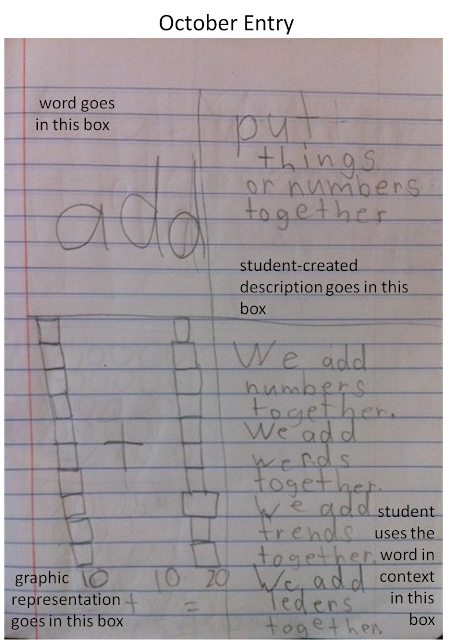 October Entry
word goes
in this box
add
put
things
or numbers
together
student-created
description goes in this
box
+
10 10 20
+ =
graphic
representation
goes in this box
We add
numbers
together.
We add
werds
together.
We add
trends
together.
We add
leders
together.
student
uses the
word in
context
in this
box